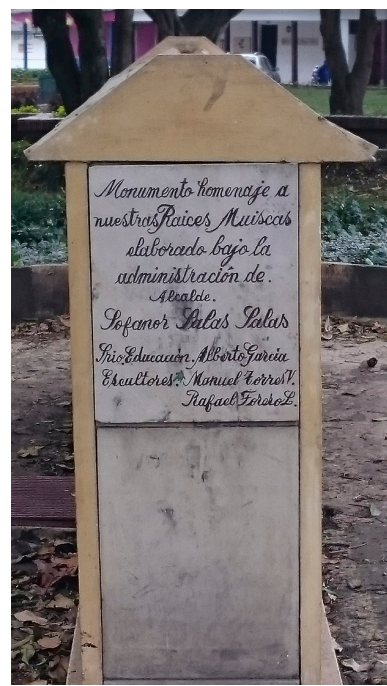 Monumento homenaje a
nuestras Raices Muiscas
elaborado bajo la
administración de.
Alcalde.
Sofanor Salas Salas
Srio. Educación. Alberto Garcia
Escultores: Manuel Torres V.
Rafael Forero L.